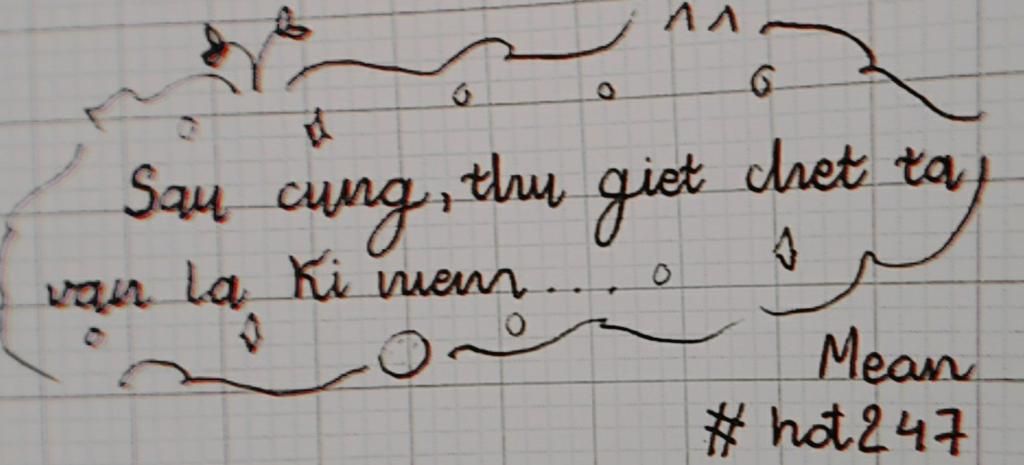 Sau cung, thu giet chet ta
van la Ki niem....
Mean
# hot247